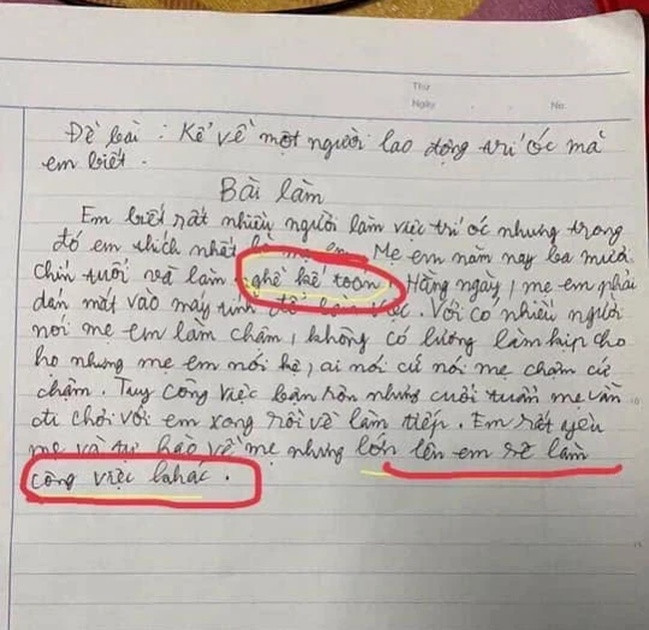 Thứ
Ngày . . No.
Đề bài : Kể về một người lao động trí óc mà
em biết.
Bài làm
Em biết rất nhiều người làm việc trí óc nhưng trong
đó em thích nhất là mẹ em. Mẹ em năm nay ba mươi
chín tuổi và làm nghề kế toán. Hằng ngày, mẹ em phải
dán mắt vào máy tính để làm việc. Với có nhiều người
nói mẹ em làm chậm, không có lương làm kịp cho
họ nhưng mẹ em nói kệ, ai nói cứ nói mẹ chậm cứ
chậm. Tuy công việc bận rộn nhưng cuối tuần mẹ vẫn
đi chơi với em xong rồi về làm tiếp. Em rất yêu
mẹ và tự hào về mẹ nhưng lớn lên em sẽ làm
công việc khác.